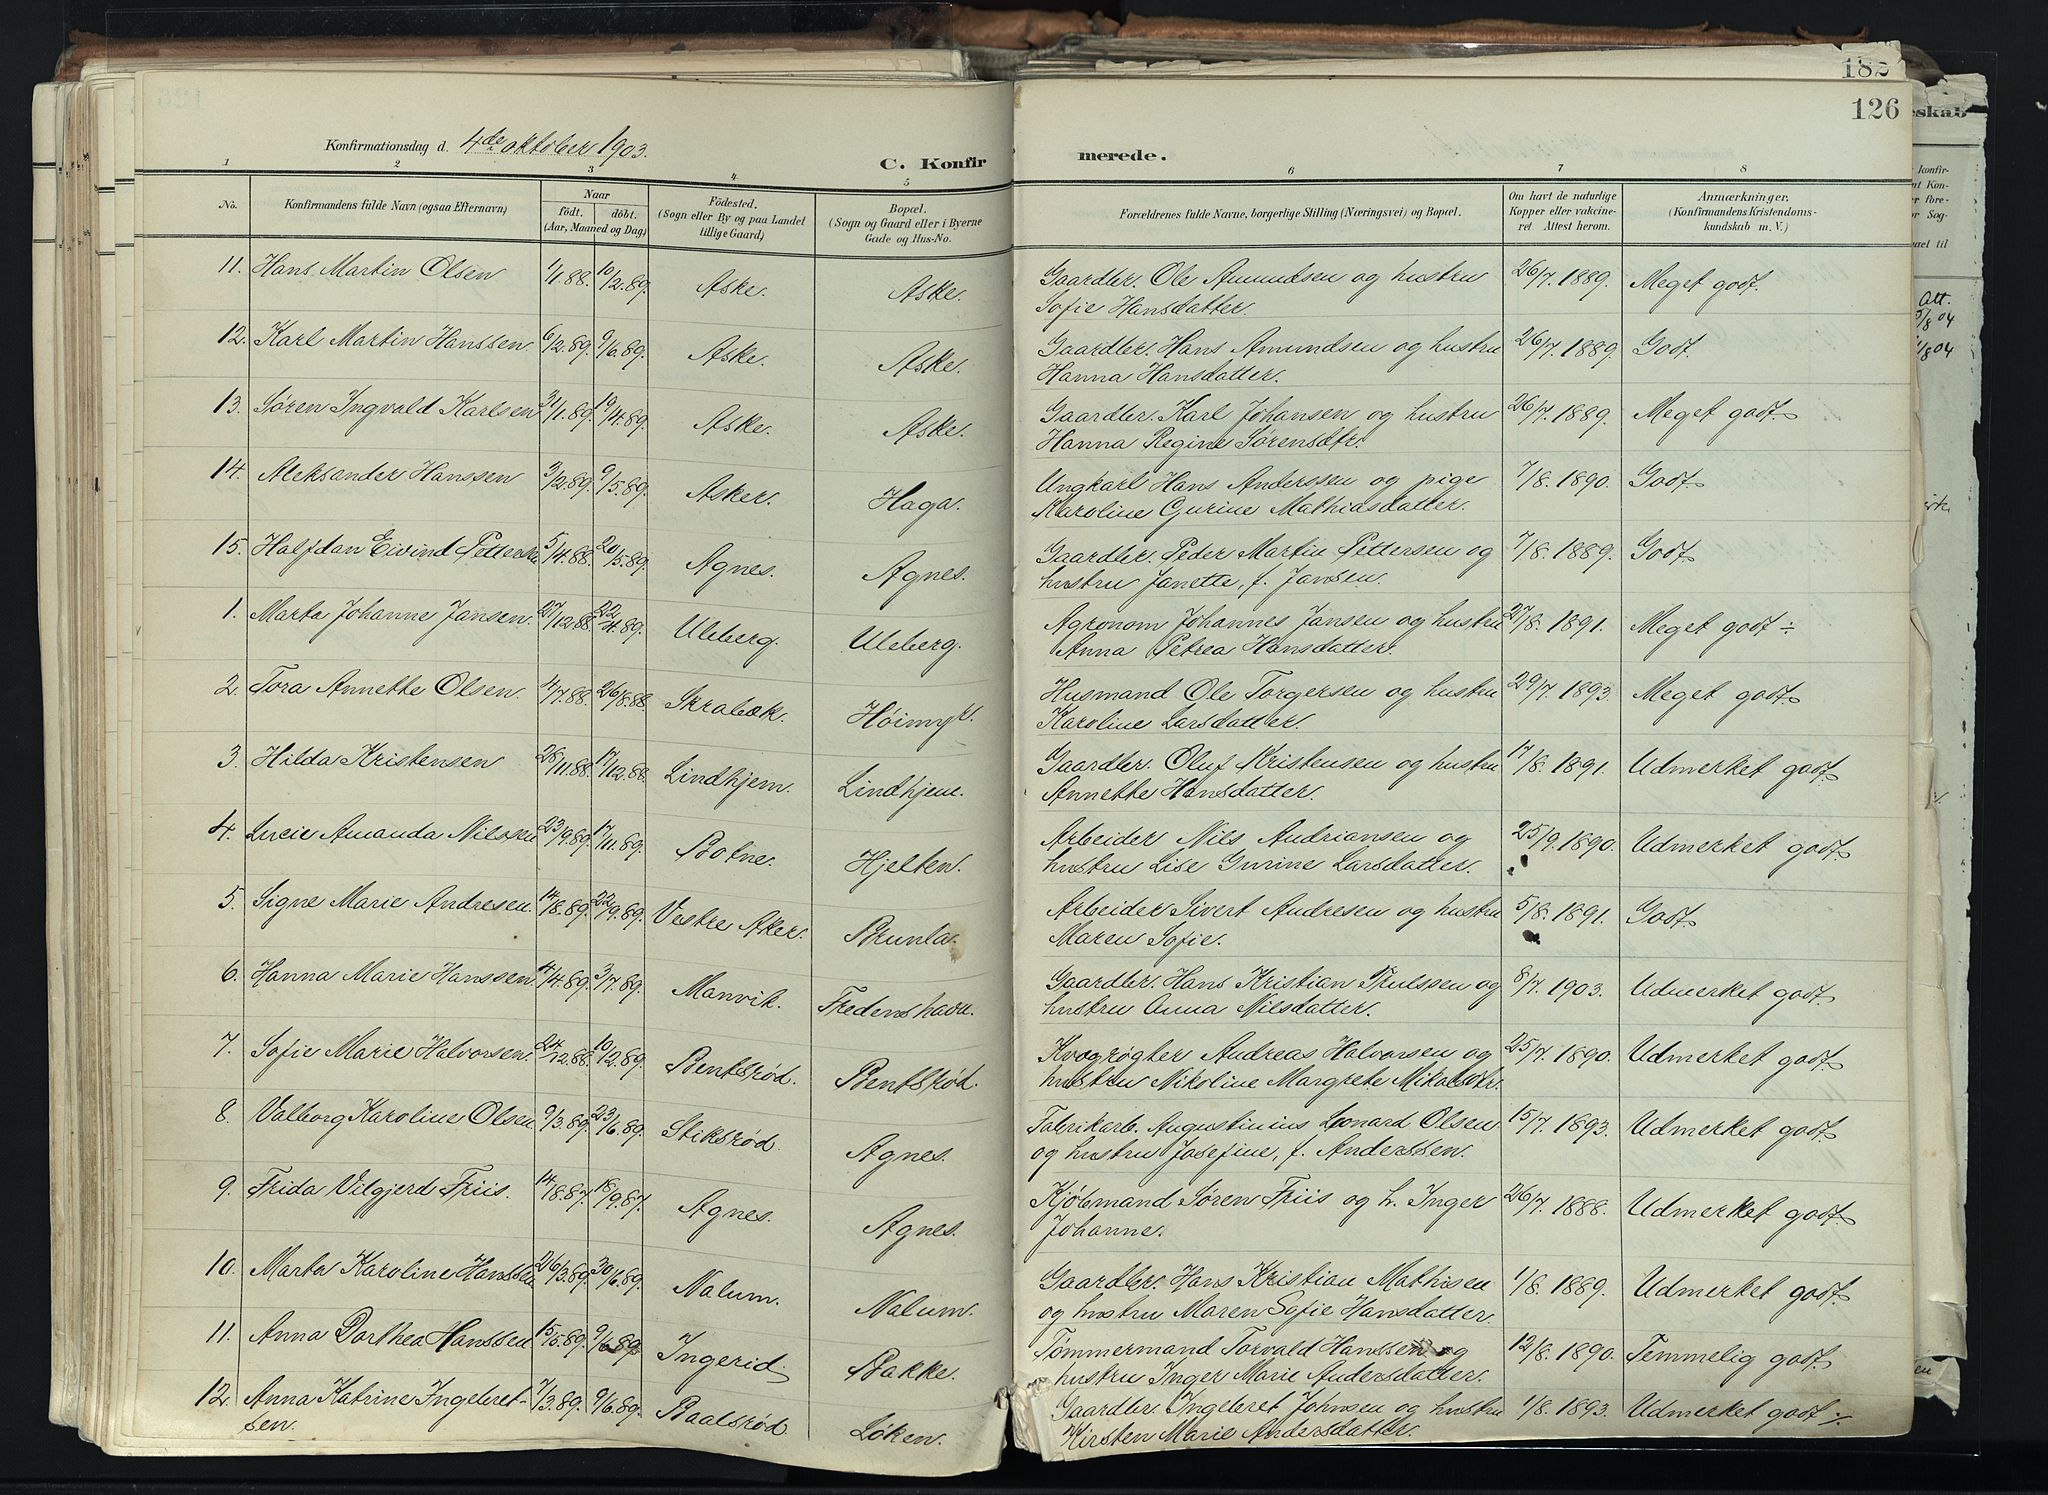 182
126
Konfirmationsdag d. 4de oktober 1903.
C. Konfirmerede.
1 2 3 4 5 6 7 8
No. Konfirmandens fulde Navn (ogsaa Efternavn) Naar født. døbt. (Aar, Maaned og Dag) Fødested. (Sogn eller By og paa Landet tillige Gaard) Bopæl. (Sogn og Gaard eller i Byerne Gade og Hus-No. Forældrenes fulde Navne, borgerlige Stilling (Næringsvei) og Bopæl. Om havt de naturlige Kopper eller vakcineret Attest herom. Anmærkninger. (Konfirmandens Kristendomskundskab m. V.)
11. Hans Martin Olsen 1/1.88. 10/2.89. Aske. Aske. Gaardbr. Ole Amundsen og hustru 26/7. 1889. Meget godt.
Sofie Hansdatter.
12. Karl Martin Hanssen 6/2.89. 9/6.89. Aske. Aske. Gaardbr. Hans Amundsen og hustru 26/7. 1889. Godt.
Hanna Hansdatter.
13. Søren Ingvald Karlsen 31/1.89. 19/4.89. Aske. Aske. Gaardbr. Karl Johansen og hustru 26/7. 1889. Meget godt.
Hanna Regine Sørensdtr.
14. Aleksander Hanssen 3/2.89. 9/5.89. Asker. Haga. Ungkarl Hans Anderssen og pige 7/8. 1890. Godt.
Karoline Gurine Mathiasdatter.
15. Halfdan Eivind Petterse 5/4.88. 20/5.89. Agnes. Agnes. Gaardbr. Peder Martin Pettersen og 7/8. 1889. Godt.
hustru Janette, f. Jansen.
1. Marta Johanne Jansen. 27/12.88. 22/4.89. Uleberg. Uleberg. Agronom Johannes Jansen og hustru 27/8. 1891. Meget godt ÷
Anna Petrea Hansdatter.
2. Tora Annette Olsen. 4/7.88. 26/8.88. Skrabæk. Høimyr. Husmand Ole Torgersen og hustru 29/7. 1893. Meget godt.
Karoline Larsdatter.
3. Hilda Kristensen 28/11.88. 17/12.88. Lindhjem. Lindhjem. Gaardbr. Oluf Kristensen og hustru 17/8. 1891. Udmerket godt.
Annette Hansdatter.
4. Lucie Amanda Nilssen 23/9.89. 17/11.89. Botne. Hjelten. Arbeider Nils Andriansen og 25/9. 1890. Udmerket godt.
hustru Lise Gurine Larsdatter.
5. Signe Marie Andresen. 14/8.89. 22/9.89. Vestre Aker. Brunla. Arbeider Sivert Andresen og hustru 5/8. 1891. Godt.
Maren Sofie.
6. Hanna Marie Hanssen 4/4.89. 3/7.89. Manvik. Fredenshavn. Gaardbr. Hans Kristian Trulssen og 8/7. 1903. Udmerket godt.
hustru Anna Nilsdatter.
7. Sofie Marie Halvorsen. 24/12.88. 10/2.89. Bentsrød. Bentsrød. Kvægrøgter Andreas Halvorsen og 25/7. 1890. Udmerket godt.
hustru Nikoline Margrete Mikalsdtr.
8. Valborg Karoline Olsen 9/3.89. 23/6.89. Stiksrød. Agnes. Fabrikarb. Augustinius Leonard Olsen 15/7. 1893. Udmerket godt.
og hustru Josefine, f. Anderssen.
9. Frida Vilgjerd Friis. 14/8.87. 18/9.87. Agnes. Agnes. Kjøbmand Søren Friis og h. Inger 26/7. 1888. Udmerket godt.
Johanne.
10. Marta Karoline Hanssen 26/3.89. 30/6.89. Nalum. Nalum. Gaardbr. Hans Kristian Mathisen 1/8. 1889. Udmerket godt.
og hustru Maren Sofie Hansdatter.
11. Anna Dorthea Hanssen 15/5.89. 9/6.89 Ingerid. Bakke. Tømmermand Torvald Hanssen og 12/8. 1890. Temmelig godt.
hustru Inger Marie Andersdatter.
12. Anna Katrine Ingebret- 7/3.89. 9/6.89. Baalsrød. Løken. Gaardbr. Ingebret Johnsen og hustru 1/8. 1893. Udmerket godt ÷
sen. Kirsten Marie Andersdatter.